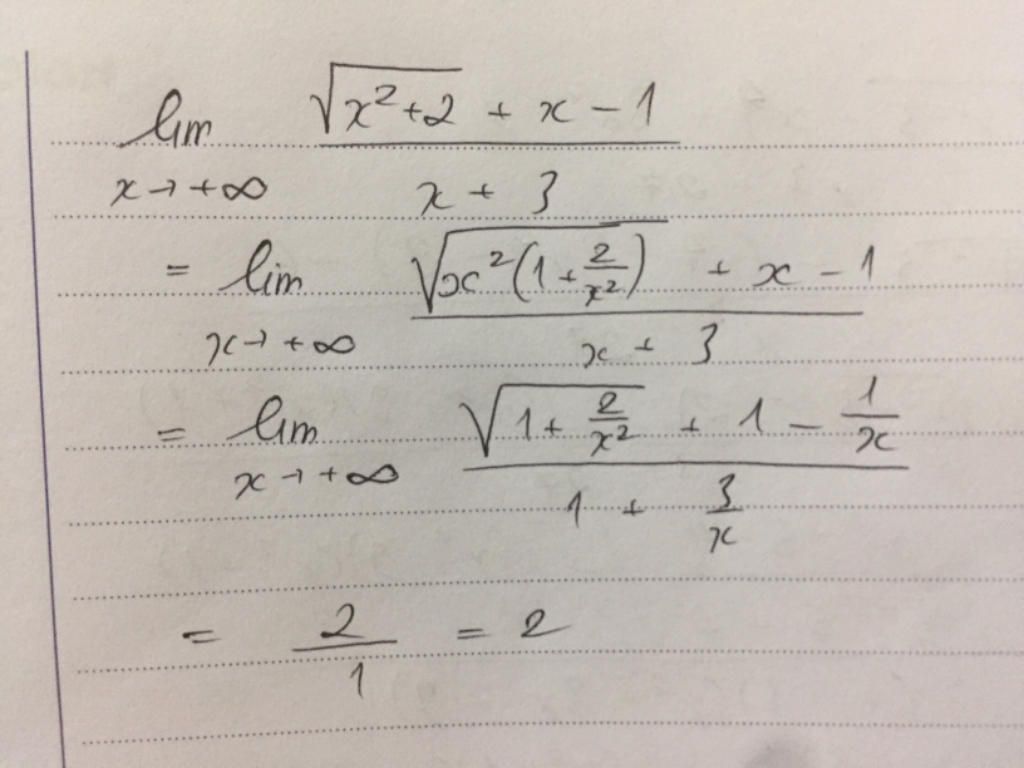 lim √(x²+2) + x − 1 / x + 3
x → +∞
= lim √(x²(1+2/x²)) + x − 1 / x + 3
x → +∞
= lim √(1+2/x²) + 1 − 1/x / 1 + 3/x
x → +∞
= 2/1 = 2